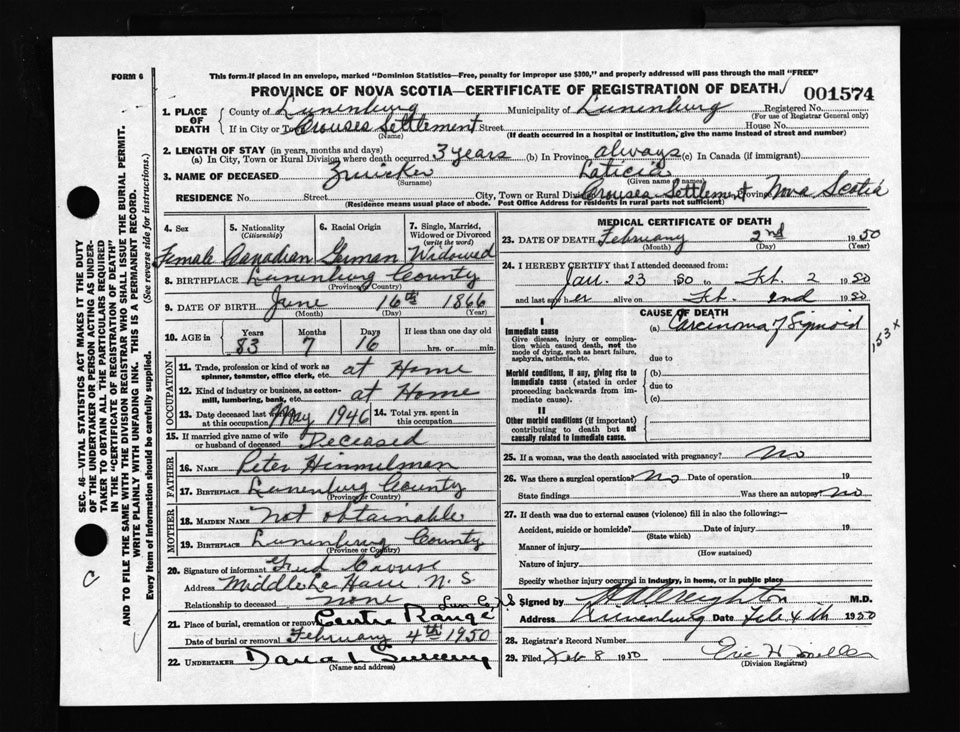 FORM 6
This form if placed in an envelope, marked "Dominion Statistics—Free, penalty for improper use $300," and properly addressed will pass through the mail "FREE"
PROVINCE OF NOVA SCOTIA—CERTIFICATE OF REGISTRATION OF DEATH
001574
1. PLACE OF DEATH
County of Lunenburg Municipality of Lunenburg Registered No.
(For use of Registrar General only)
If in City or Town Crouses Settlement Street House No.
(Name) (If death occurred in a hospital or institution, give the name instead of street and number)
2. LENGTH OF STAY (in years, months and days)
(a) In City, Town or Rural Division where death occurred 3 years (b) In Province always (c) In Canada (if immigrant)
3. NAME OF DECEASED Zwicker Laticia
(Surname) (Given name or names)
RESIDENCE No. Street City, Town or Rural Division Crouses Settlement Province Nova Scotia
(Residence means usual place of abode. Post Office Address for residents in rural parts not sufficient)
4. Sex 5. Nationality (Citizenship) 6. Racial Origin 7. Single, Married, Widowed or Divorced (write the word)
Female Canadian German Widowed
8. BIRTHPLACE Lunenburg County
(Province or Country)
9. DATE OF BIRTH June 16th 1866
(Month) (Day) (Year)
10. AGE in Years Months Days If less than one day old
83 7 16 hrs. or min.
OCCUPATION
11. Trade, profession or kind of work as spinner, teamster, office clerk, etc. at Home
12. Kind of industry or business, as cotton-mill, lumbering, bank, etc. at Home
13. Date deceased last worked at this occupation May 1946 14. Total yrs. spent in this occupation
15. If married give name of wife or husband of deceased Deceased
FATHER
16. NAME Peter Himmelman
17. BIRTHPLACE Lunenburg County
(Province or Country)
MOTHER
18. MAIDEN NAME not obtainable
19. BIRTHPLACE Lunenburg County
(Province or Country)
20. Signature of informant Fred Crouse
Address Middle La Have N. S.
Relationship to deceased none
Lun Co NS
21. Place of burial, cremation or removal Centre Range
Date of burial or removal February 4th 1950
22. UNDERTAKER
(Name and address)
MEDICAL CERTIFICATE OF DEATH
23. DATE OF DEATH February 2nd 1950
(Month) (Day) (Year)
24. I HEREBY CERTIFY that I attended deceased from:
Jan. 23 1950 to Feb. 2 1950
and last saw her alive on Feb. 2nd 1950
CAUSE OF DEATH
I
Immediate cause (a) Carcinoma of Sigmoid
153 x
Give disease, injury or complication which caused death, not the mode of dying, such as heart failure, asphyxia, asthenia, etc.
due to
Morbid conditions, if any, giving rise to immediate cause (stated in order proceeding backwards from immediate cause).
(b)
due to
(c)
II
Other morbid conditions (if important) contributing to death but not causally related to immediate cause.
25. If a woman, was the death associated with pregnancy? No
26. Was there a surgical operation? No Date of operation 19
State findings Was there an autopsy? No
27. If death was due to external causes (violence) fill in also the following:—
Accident, suicide or homicide? Date of injury 19
(State which)
Manner of injury
(How sustained)
Nature of injury
Specify whether injury occurred in industry, in home, or in public place
Signed by H A Creighton M.D.
Address Lunenburg Date Feb. 4th 1950
28. Registrar's Record Number
29. Filed Feb 8 1950 Eric H
(Division Registrar)
SEC. 46—VITAL STATISTICS ACT MAKES IT THE DUTY
OF THE UNDERTAKER OR PERSON ACTING AS UNDER-
TAKER TO OBTAIN ALL THE PARTICULARS REQUIRED
IN THE "CERTIFICATE OF REGISTRATION OF DEATH"
AND TO FILE THE SAME WITH THE DIVISION REGISTRAR WHO SHALL ISSUE THE BURIAL PERMIT.
WRITE PLAINLY WITH UNFADING INK. THIS IS A PERMANENT RECORD.
Every item of information should be carefully supplied. (See reverse side for instructions.)
C